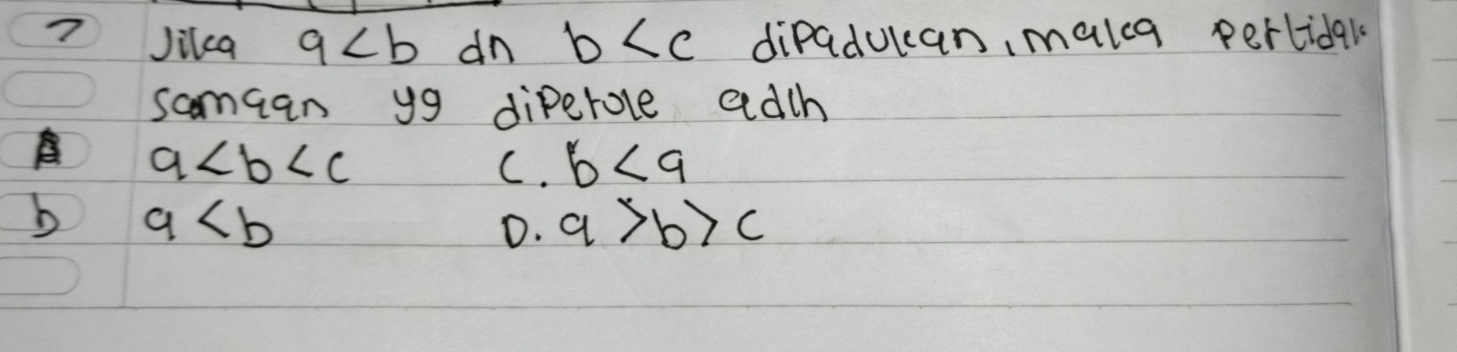 7 Jika a<b dn b<c dipadukan, maka pertidak
samaan yg diperole adlh
A a<b<c C. b<a
b a<b D. a>b>c